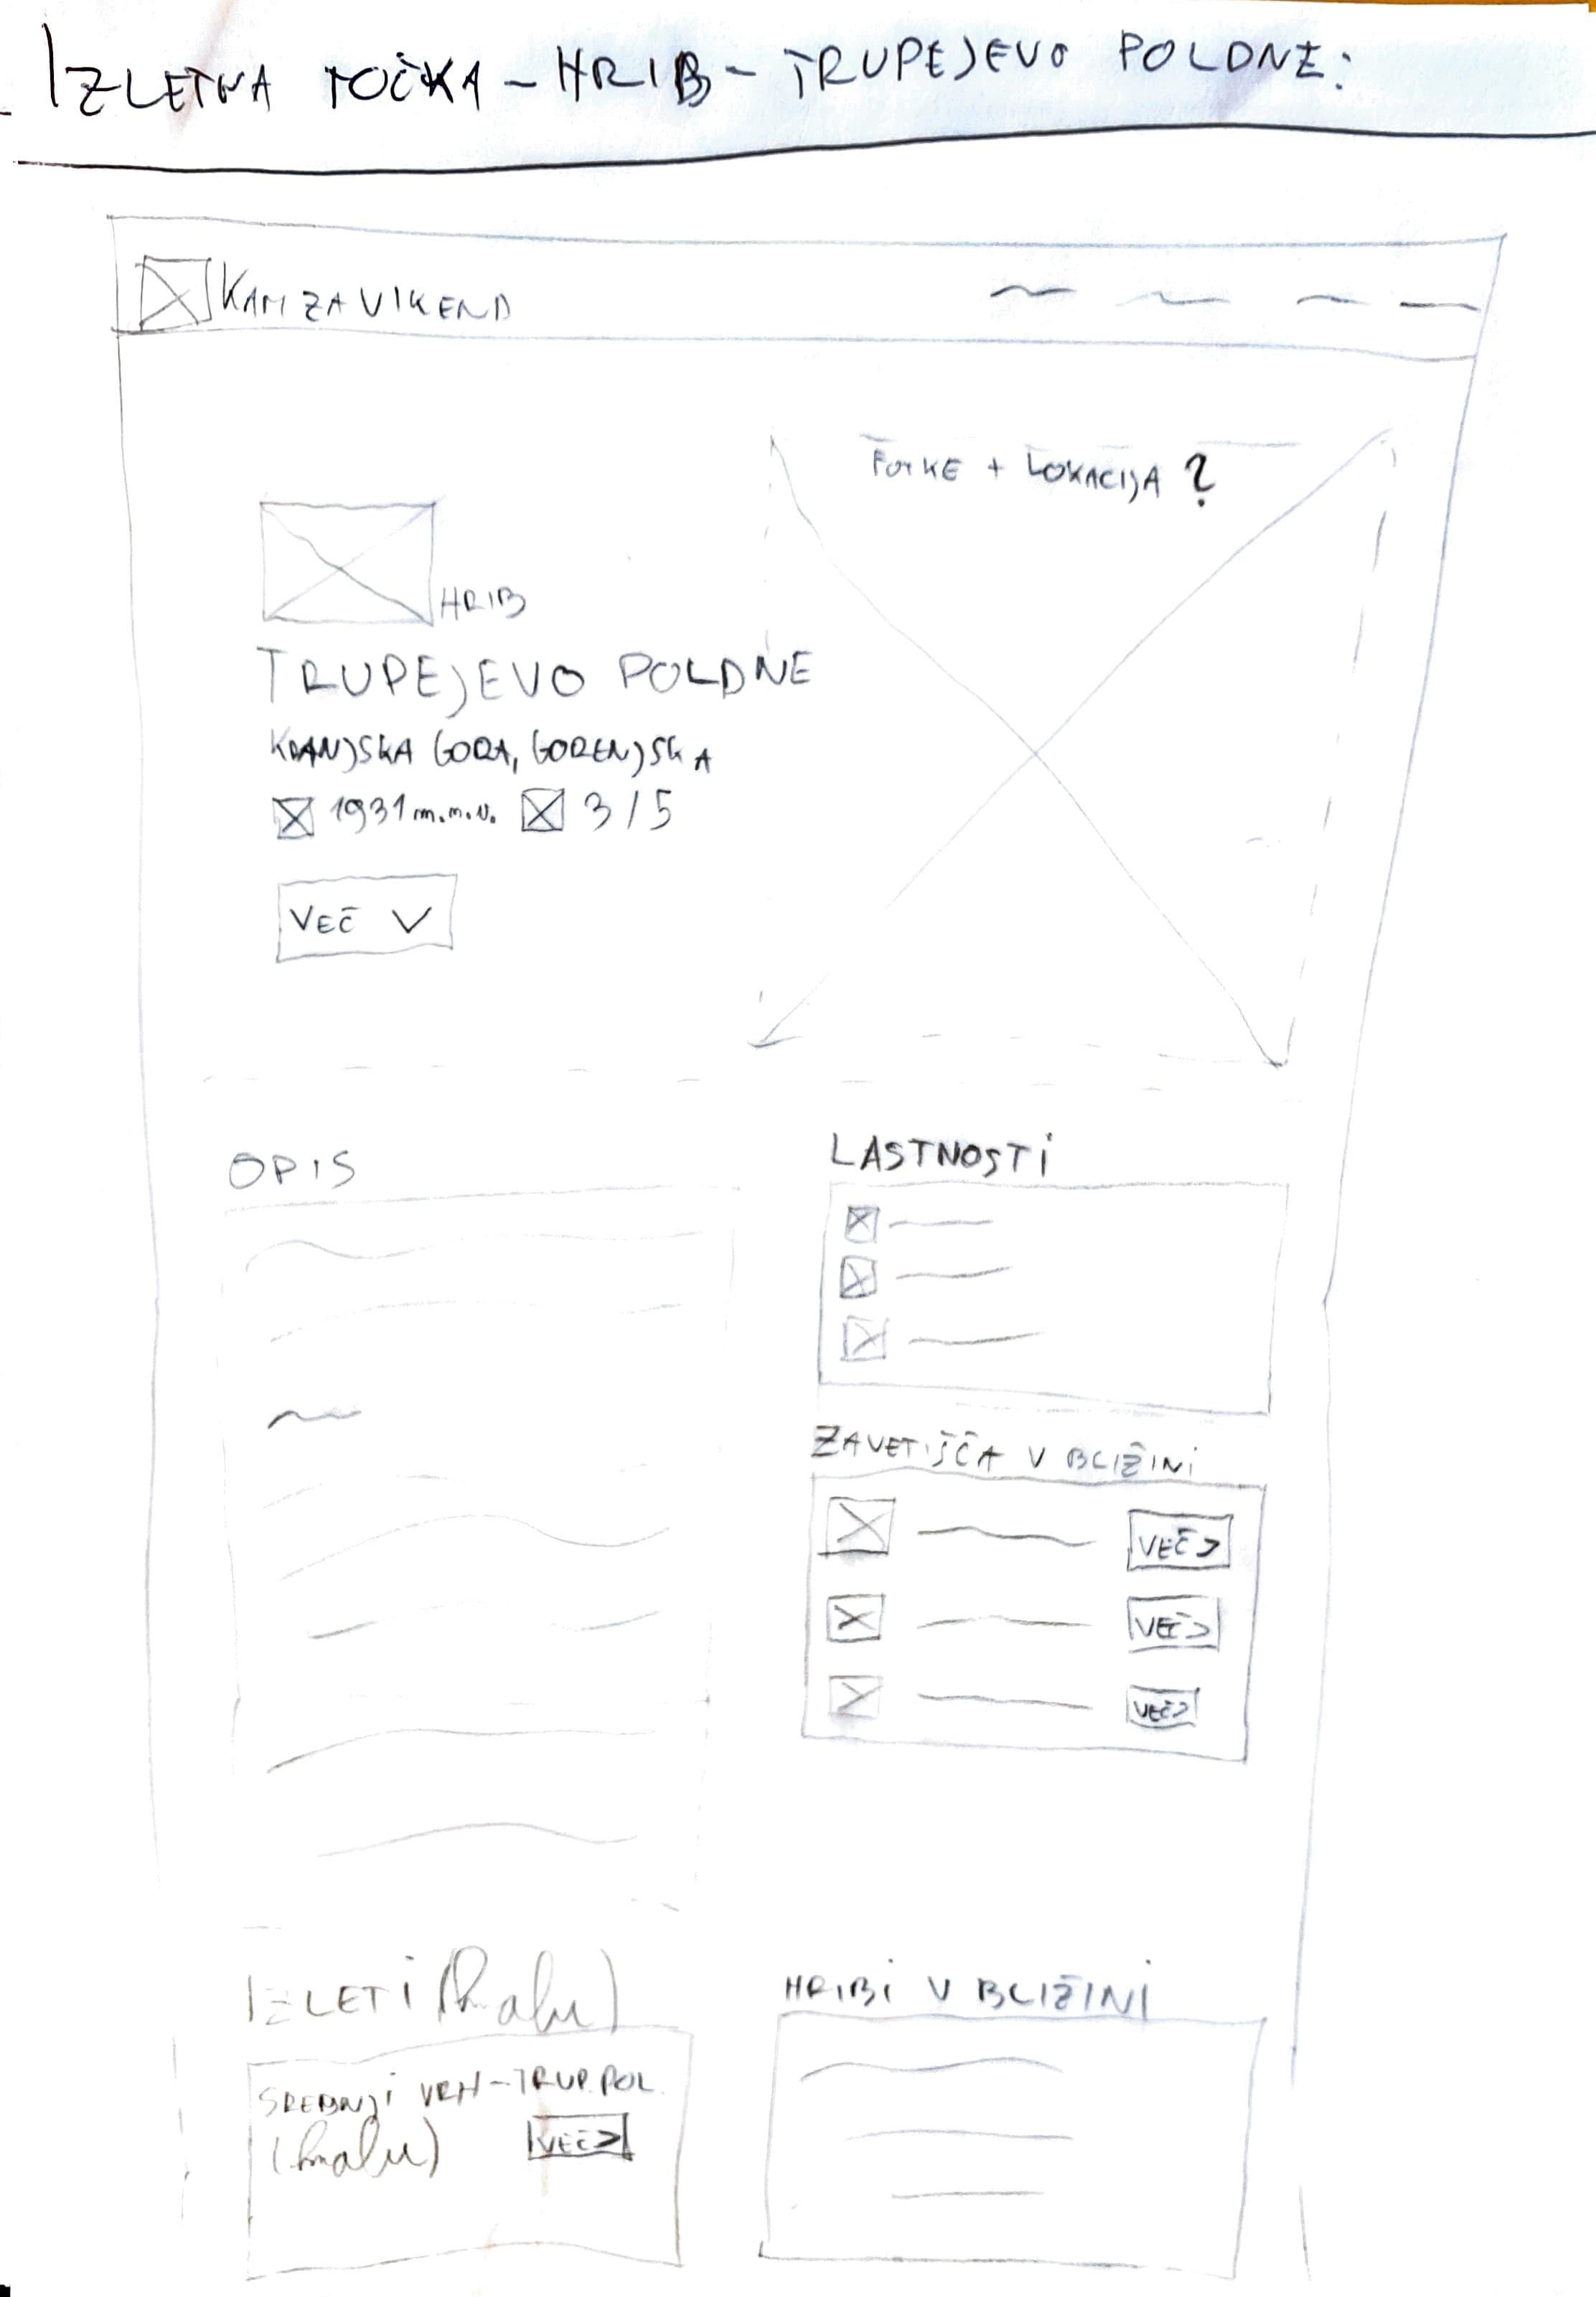 IZLETNA TOČKA - HRIB - TRUPEJEVO POLDNE:
KAM ZA VIKEND
FOTKE + LOKACIJA ?
HRIB
TRUPEJEVO POLDNE
KRANJSKA GORA, GORENJSKA
1931 m.n.v. 3/5
VEČ
OPIS
LASTNOSTI
ZAVETIŠČA V BLIŽINI
VEČ >
VEČ >
VEČ >
IZLETI (kmalu)
SREDNJI VRH - TRUP. POL.
(kmalu) VEČ >
HRIBI V BLIŽINI